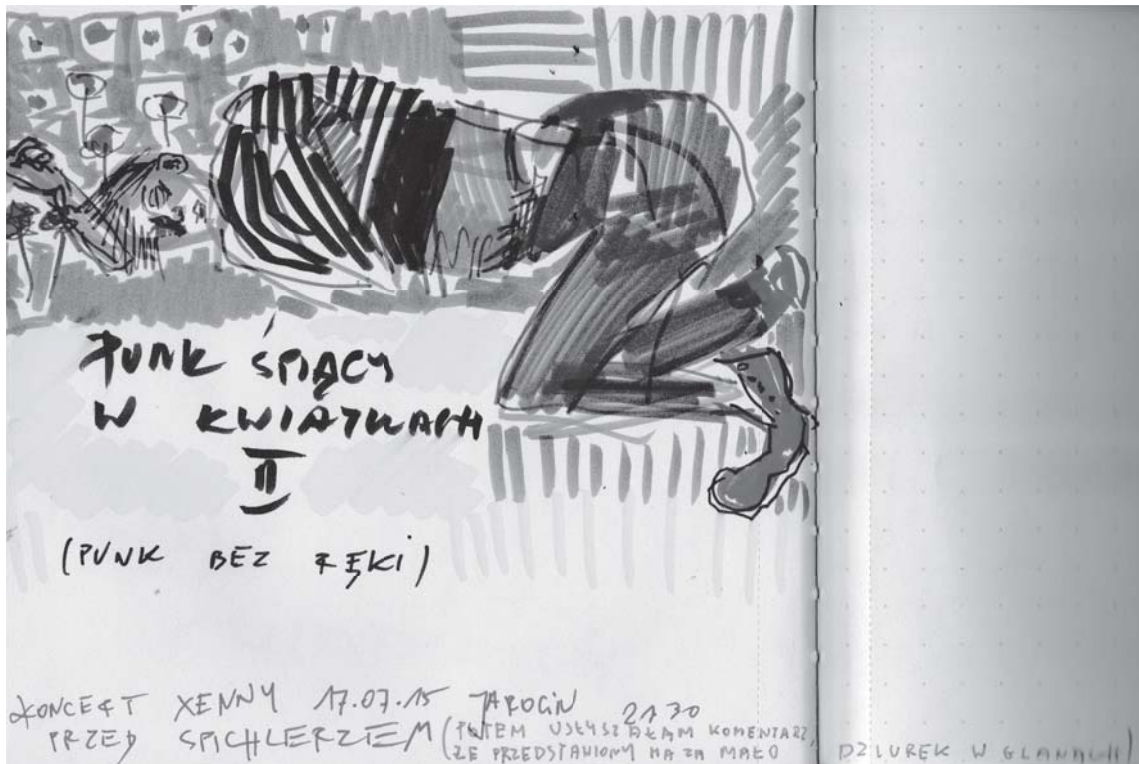 PUNK ŚPIĄCY
W KWIATKACH
II
(PUNK BEZ RĘKI)
KONCERT XENNY 17.07.15 JAROCIN 21 30
PRZED SPICHLERZEM (POTEM USŁYSZAŁAM KOMENTARZ,
ŻE PRZEDSTAWIONY MA ZA MAŁO DZIUREK W GLANACH)